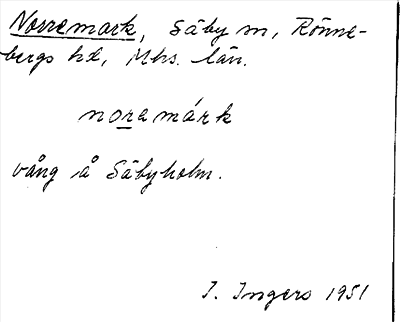 Norremark, Säby sn, Rönne-
bergs hd, Mhs. län.
noramárk
vång å Säbyholm.
I. Ingers 1951